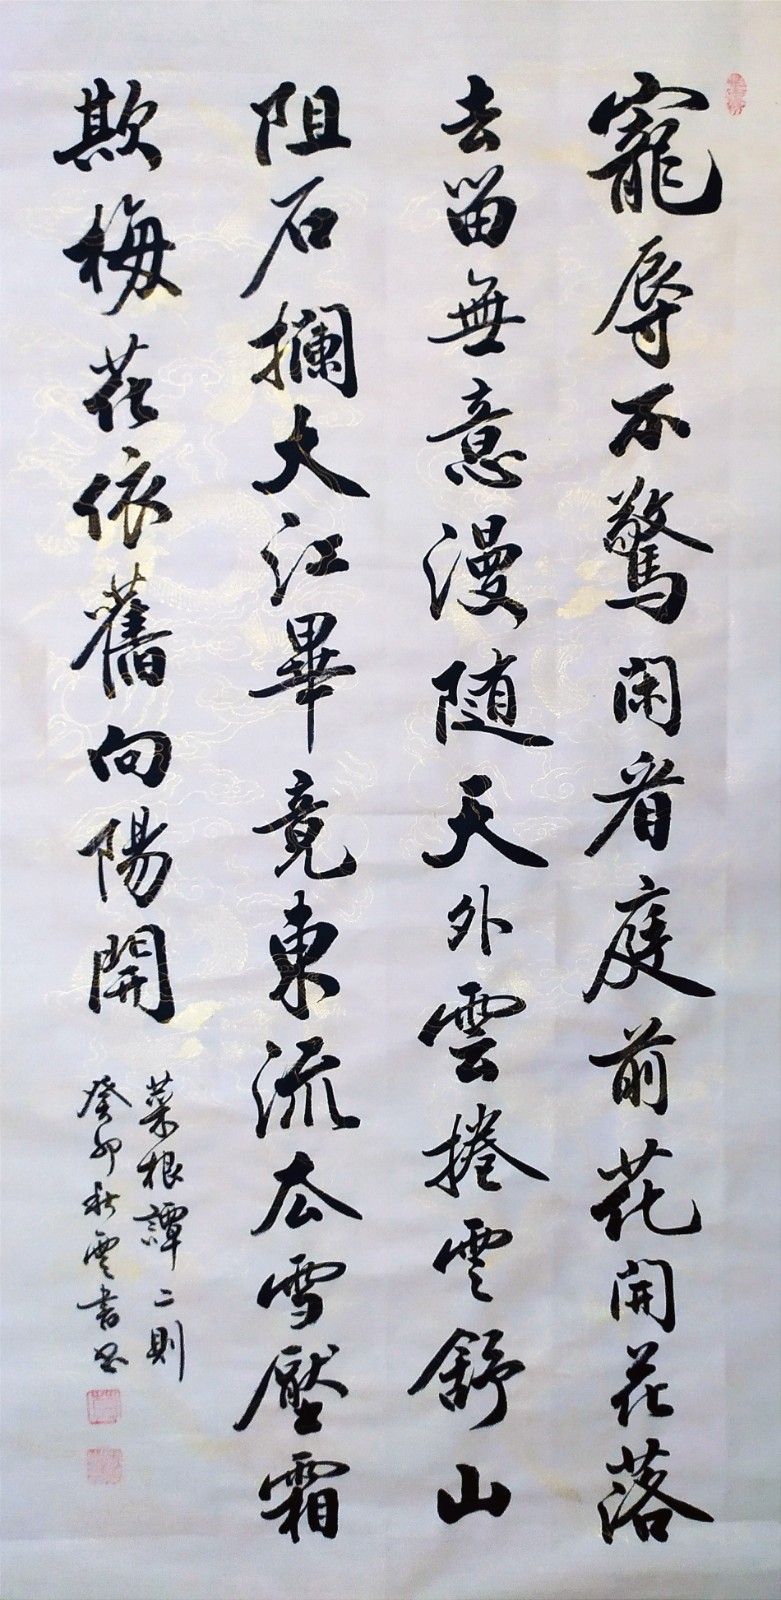 寵辱不驚閑看庭前花開花落
去留無意漫随天外雲捲雲舒山
阻石攔大江畢竟東流去雪壓霜
欺梅花依舊向陽開
菜根譚二則
癸卯秋雲書